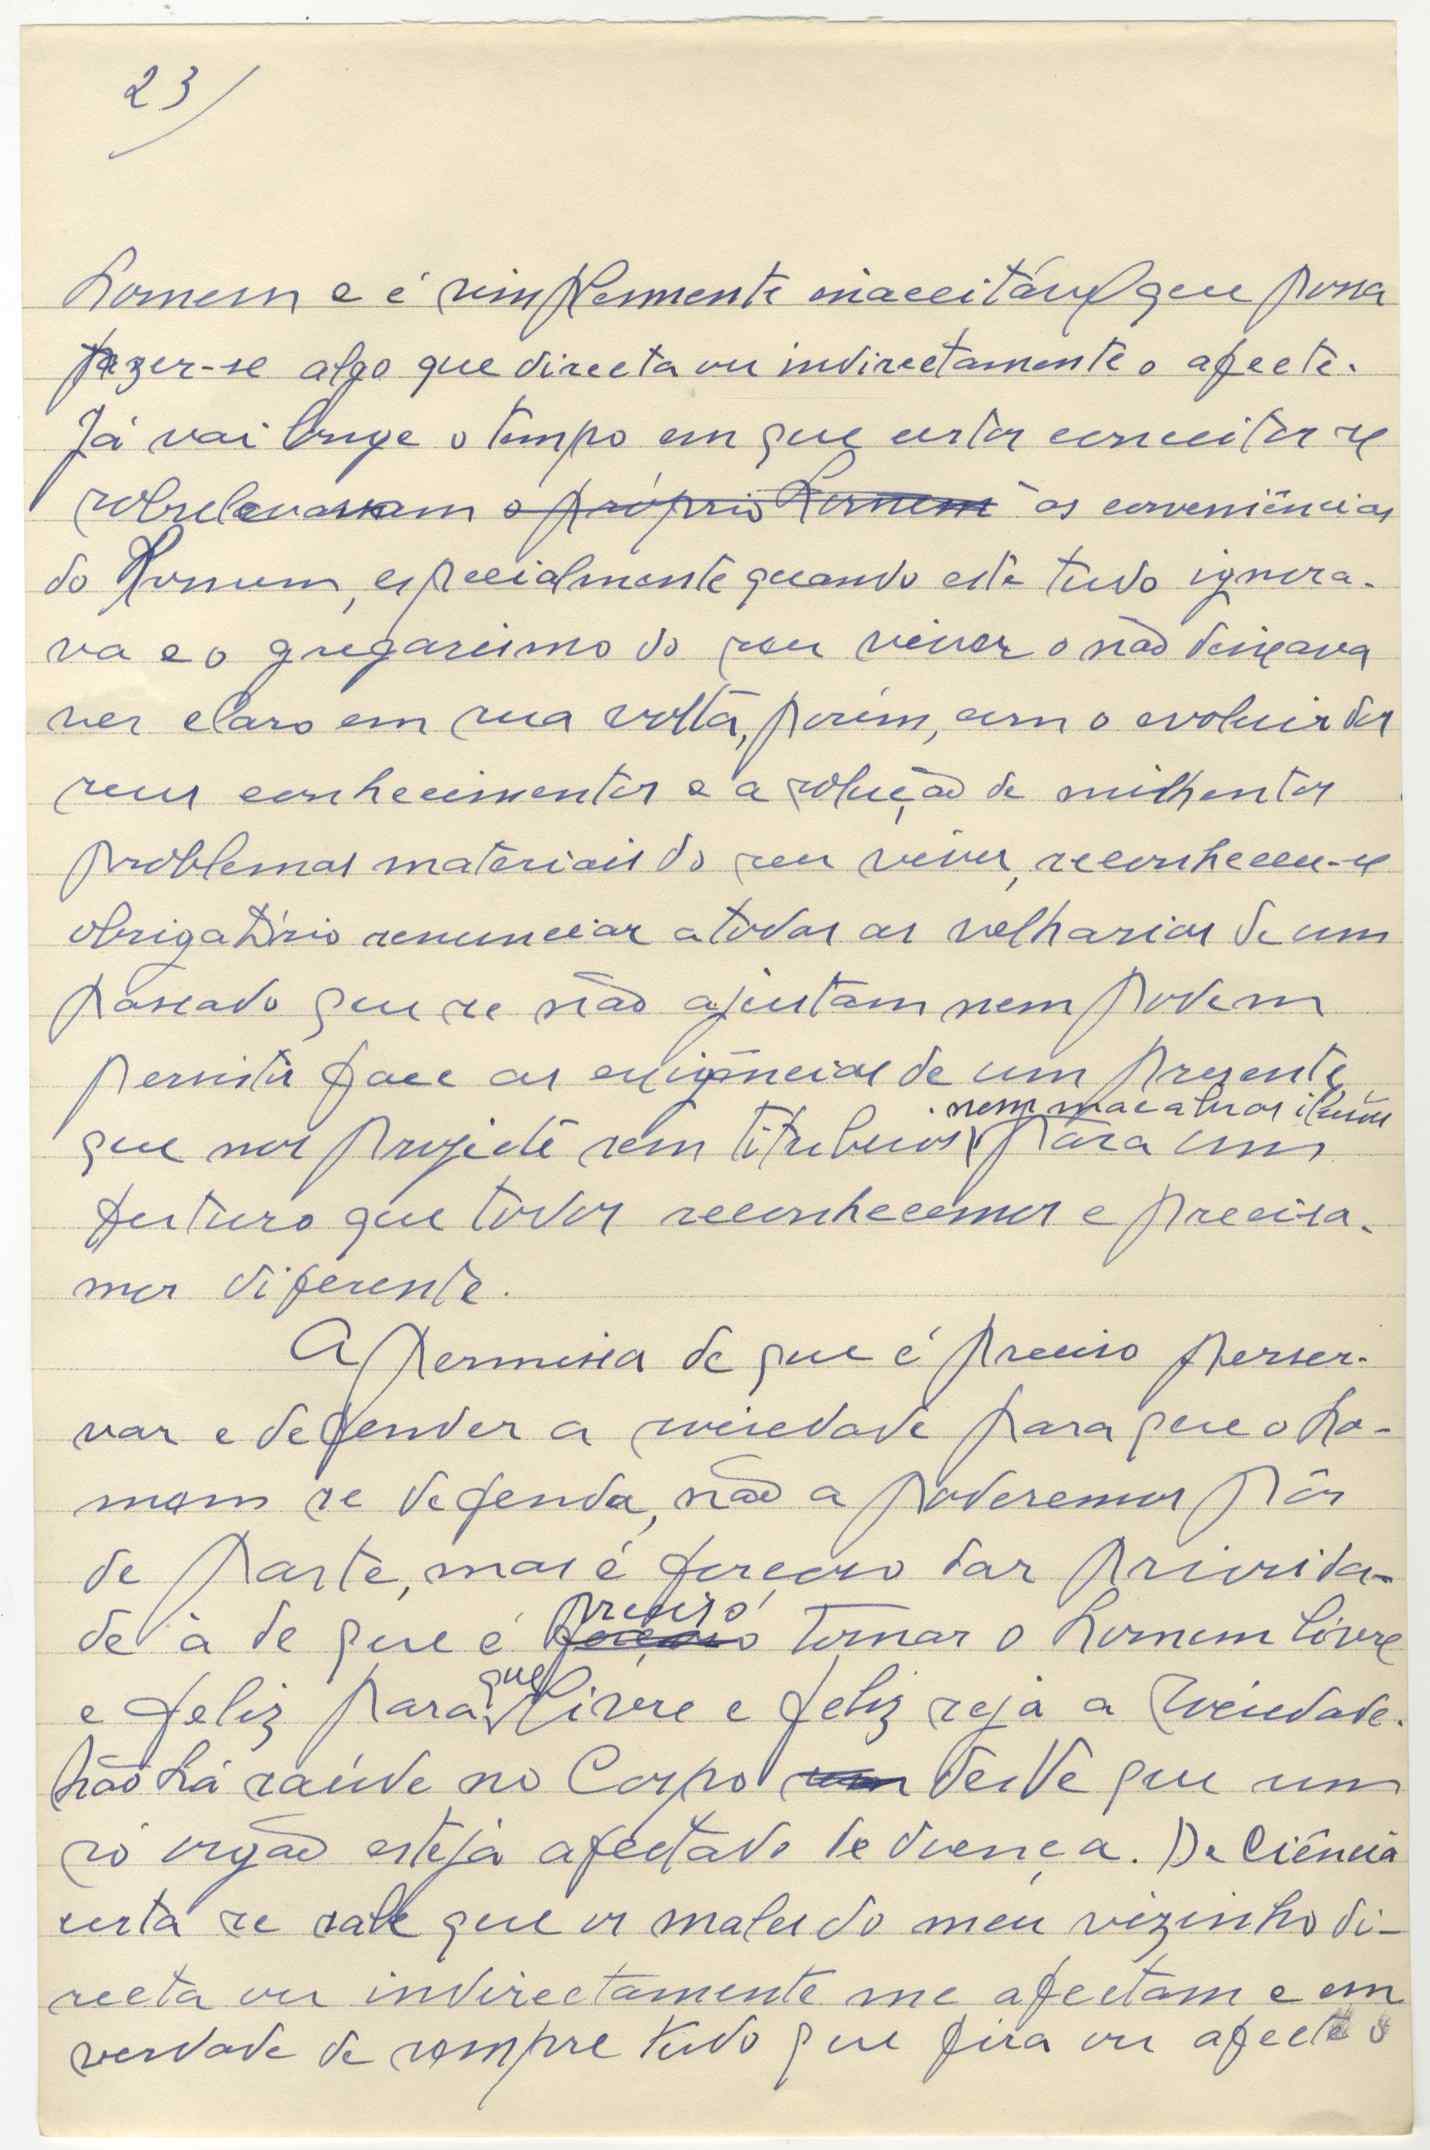 23/
homem e é simplesmente inaceitável que possa
fazer-se algo que directa ou indirectamente o afecte.
Já vai longe o tempo em que certos conceitos se
sobrelevavam o próprio homem às conveniências
do Homem, especialmente quando este tudo ignora-
va e o gregarismo do seu viver o não deixava
ver claro em sua volta, porém, com o evoluir dos
seus conhecimentos e a solução de milhentos
problemas materiais do seu viver, reconheceu-se
obrigatório renunciar a todas as velharias de um
passado que se não ajustam nem podem
persistir face as exigências de um presente
nem macabras
que nos projecte sem titubeios para um
futuro que todos reconhecemos e precisa-
mos diferente.
A permissa de que é preciso perser-
var e defender a sociedade para que o ho-
mem se defenda, não a poderemos pôr
de parte, mas é forçoso dar priorida-
de à de que é forçoso preciso tornar o homem livre
e feliz para que livre e feliz seja a sociedade.
Não há saúde no Corpo desde que um
só orgão esteja afectado de doença. De Ciência
certa se sabe que os males do meu vizinho di-
recta ou indirectamente me afectam e em
verdade de sempre tudo que fira ou afecte o